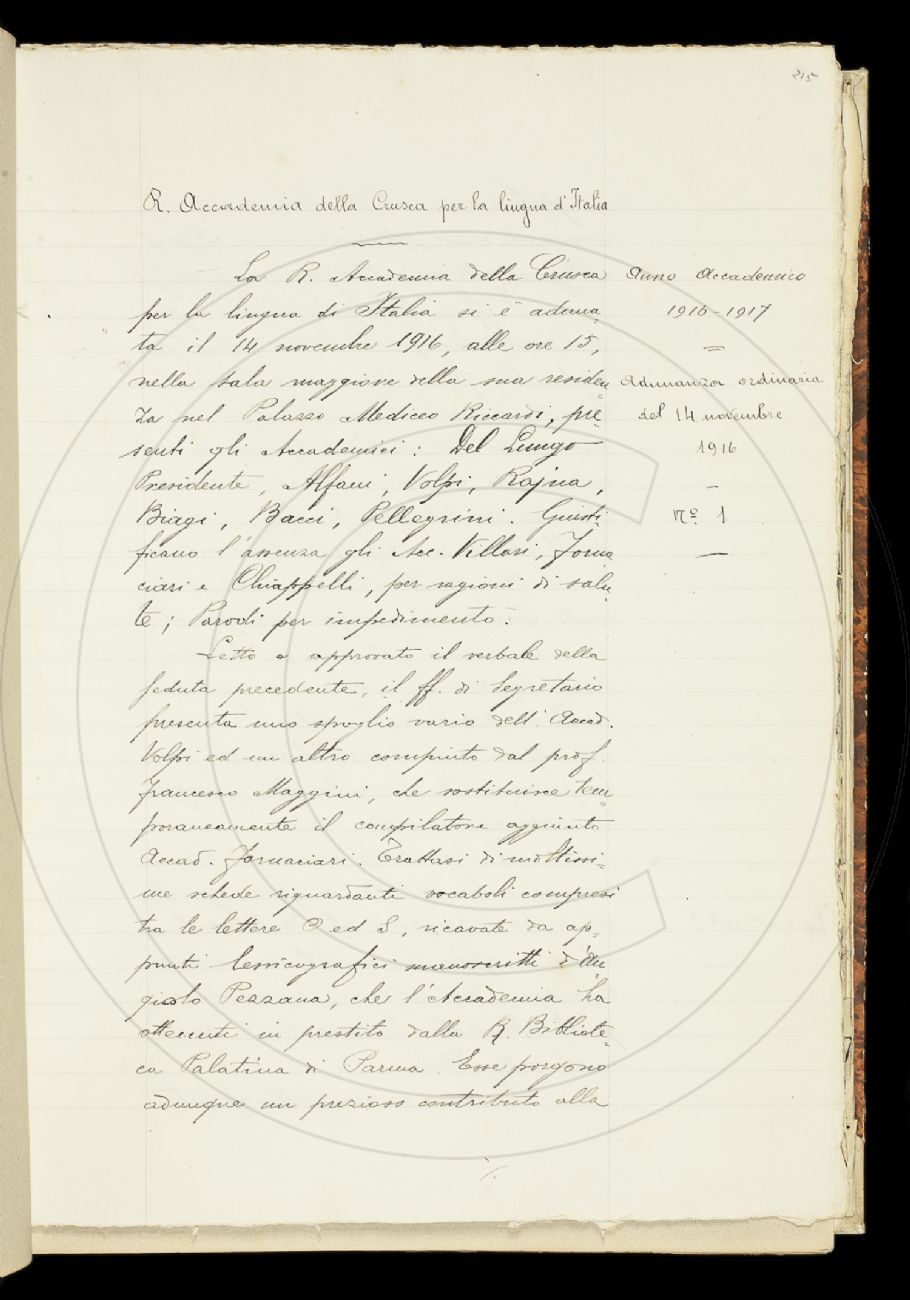 215
R. Accademia della Crusca per la lingua d'Italia
La R. Accademia della Crusca
per la lingua di Italia si è aduna-
ta il 14 novembre 1916, alle ore 15,
nella sala maggiore della sua residen-
za nel Palazzo Mediceo Riccardi, pre-
senti gli Accademici: Del Lungo
Presidente, Alfani, Volpi, Rajna,
Biagi, Bacci, Pellegrini. Giusti-
ficano l'assenza gli Acc. Villari, Forna
ciari e Chiappelli, per ragioni di salu-
te; Parodi per impedimento.
Letto e approvato il verbale della
seduta precedente, il ff. di Segretario
presenta uno spoglio vario dell'Accad.
Volpi ed un altro compiuto dal prof.
Francesco Maggini, che sostituisce tem-
poraneamente il compilatore aggiunto
Accad. Fornaciari. Trattasi di moltissi-
me schede riguardanti vocaboli compresi
tra le lettere O ed S, ricavate da ap-
punti lessicografici manoscritti d'An-
giolo Pezzana, che l'Accademia ha
ottenuti in prestito dalla R. Bibliote-
ca Palatina di Parma. Esse porgono
adunque un prezioso contributo alla
Anno Accademico
1916-1917
=
Adunanza ordinaria
del 14 novembre
1916
—
Nº 1
—